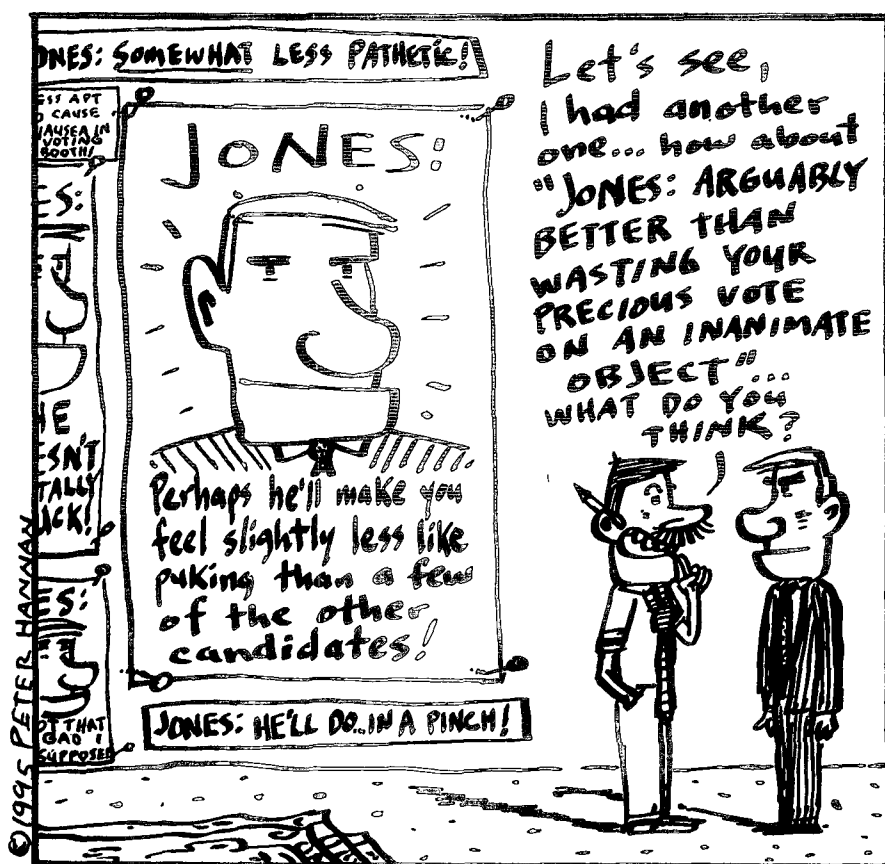 ONES: SOMEWHAT LESS PATHETIC!
SS APT
CAUSE
NAUSEA IN
VOTING
BOOTH!
ES:
HE
ESN'T
TALLY
CK!
ES:
OT THAT
BAD I
SUPPOSE
JONES:
Perhaps he'll make you
feel slightly less like
puking than a few
of the other
candidates!
JONES: HE'LL DO...IN A PINCH!
Let's see,
I had another
one... how about
"JONES: ARGUABLY
BETTER THAN
WASTING YOUR
PRECIOUS VOTE
ON AN INANIMATE
OBJECT"...
WHAT DO YOU
THINK?
©1995 PETER HANNAN